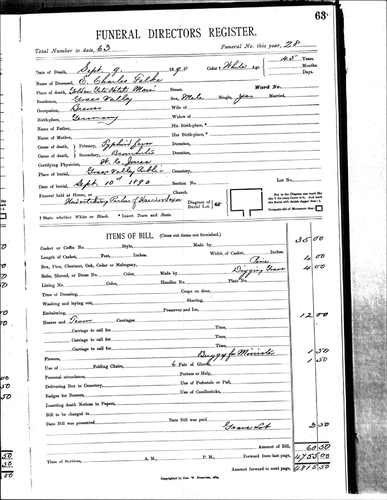 63
FUNERAL DIRECTORS REGISTER.
Total Number to date, 63 Funeral No. this year, 28
Date of Death, Sept. 9 1890 Color † White Age 45 Years. Months. Days.
Name of Deceased, E. Charles
Place of Death, Ward No.
Residence, Grass Valley Street, Sex, Male Single, Yes Married,
Occupation, Brewer Wife of
Birth-place, Germany Widow of
Name of Father, His Birth-place *
Name of Mother, Her Birth-place *
Cause of death, Primary, Typhoid Duration,
Cause of death, Secondary, Duration,
Certifying Physician, W. C. Jones
Place of burial, Grass Valley Public Cemetery,
Date of burial, Sept. 10th 1890 Section No. Lot No.
Funeral held at: House, Church.
Undertaking Parlor of
Diagram of Burial Lot.
† State whether White or Black. * Insert Town and State.
ITEMS OF BILL. (Cross out items not furnished.)
Casket or Coffin No. Style, Made by 35 00
Length of Casket, Feet, Inches. Width of Casket, Inches.
Box, Pine, Chestnut, Oak, Cedar or Mahogany, Pine 4 00
Robe, Shroud, or Dress No. Color, Made by Digging Grave 4 00
Lining No. Color, Handles No. Plate No.
Time of Dressing, Crape on door,
Washing and laying out, Shaving,
Embalming, Preserver and Ice,
Hearse and Team Carriages 12 00
Carriage to call for Time,
Carriage to call for Time,
Carriage to call for Time,
Carriage to call for Time,
Flowers, Buggy for Minister 1 50
Use of Folding Chairs, 6 Pair of Gloves, 1 50
Personal attendance, Porters or Help,
Delivering Box to Cemetery, Use of Pedestals or Pall,
Badges for Bearers, Use of Candlesticks,
Inserting death Notices in Papers,
Bill to be charged to
Date Bill was presented Date Bill was paid
Grave Lot 2 50
Amount of Bill, 60 50
Time of Service, A. M., P. M., Forward from last page, 4755 00
Amount forward to next page, 4815 50